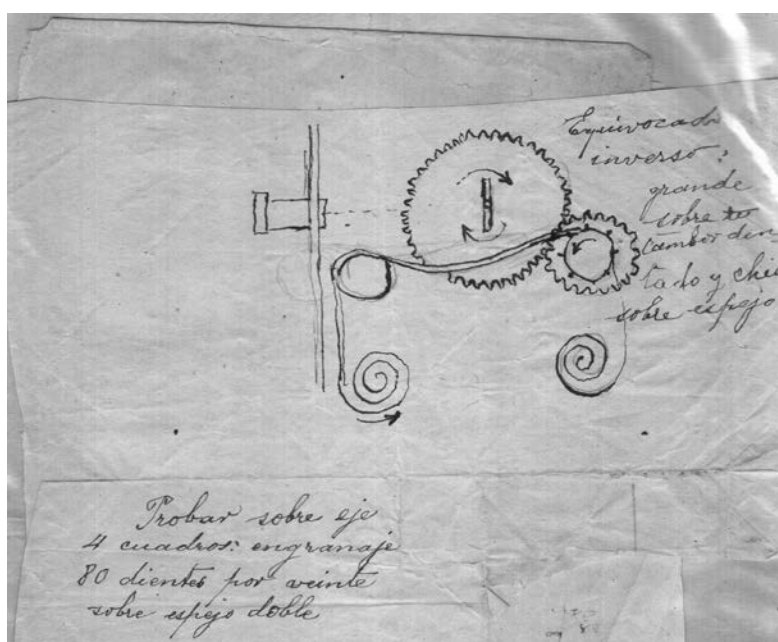 Equivocado
inverso:
grande
sobre
tambor den
tado y chi
sobre espejo
Probar sobre eje
4 cuadros: engranaje
80 dientes por veinte
sobre espejo doble